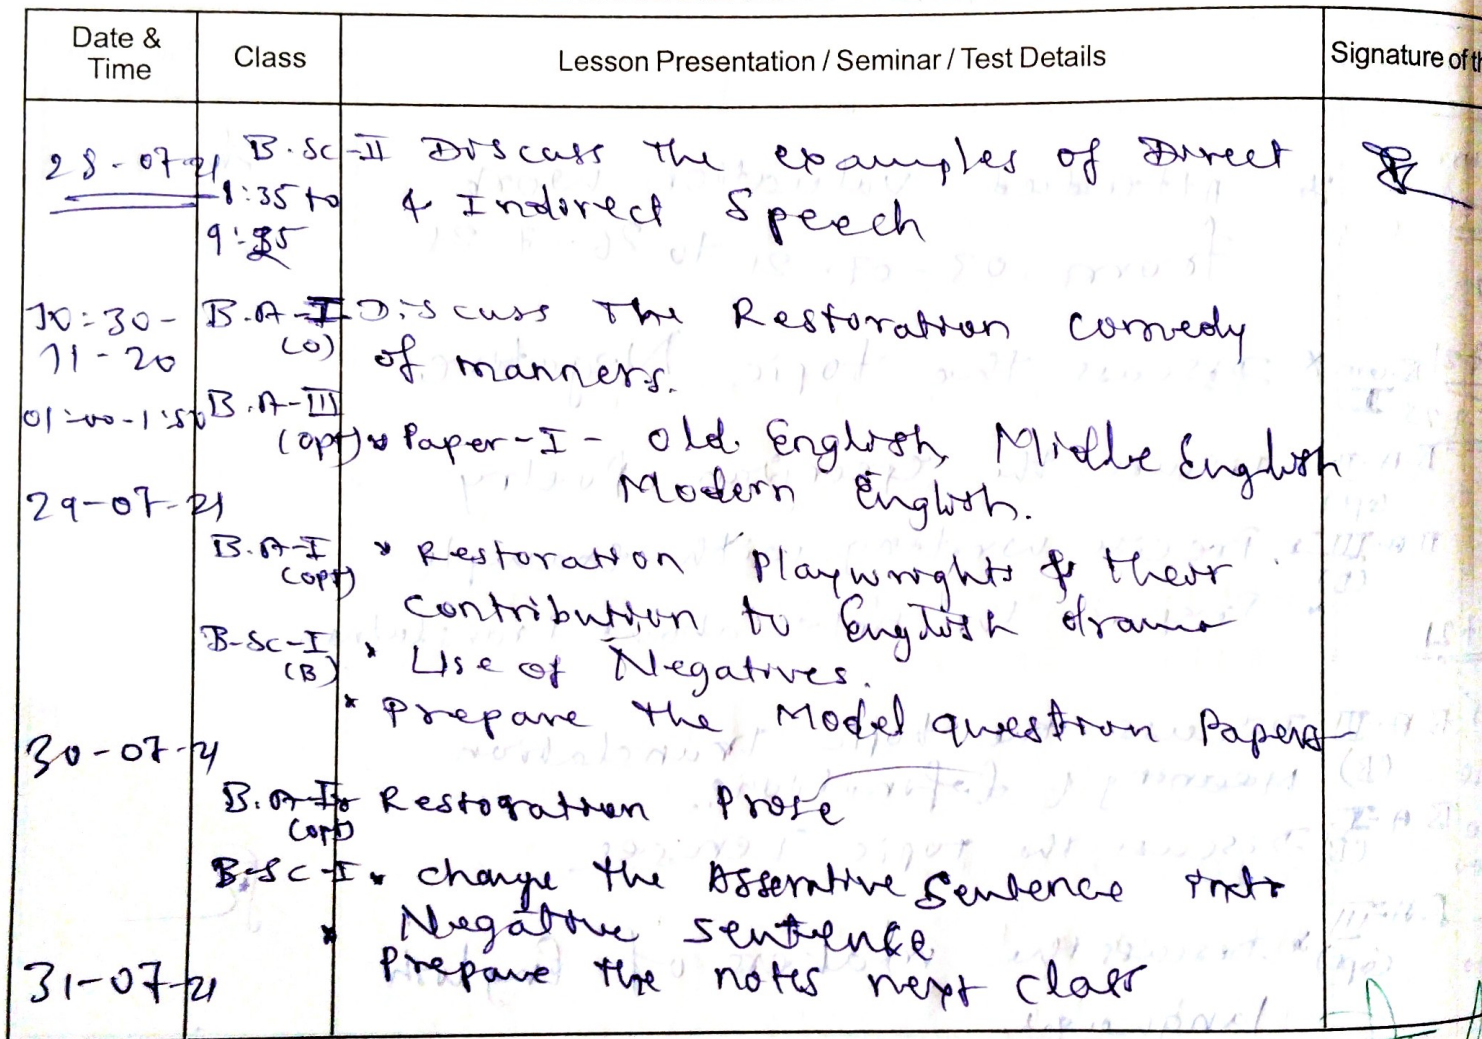 Date & Time Class Lesson Presentation / Seminar / Test Details Signature of th
28-07-21 B.Sc-II Discuss the examples of Direct
8:35 to & Indirect Speech
9:35
10:30- B.A-I Discuss The Restoration comedy
11-20 (O) of manners.
01:00-1:50 B.A-III
(opt) * Paper-I - Old English, Middle English
29-07-21 Modern English.
B.A-I * Restoration Playwrights & their
(opt) contribution to English drama
B-Sc-I * Use of Negatives.
(B)
* Prepare the Model question Papers
30-07-21
B.A-I * Restoration Prose
(opt)
B-Sc-I * change the Asserative Sentence into
* Negative sentence
31-07-21 Prepare the notes next class